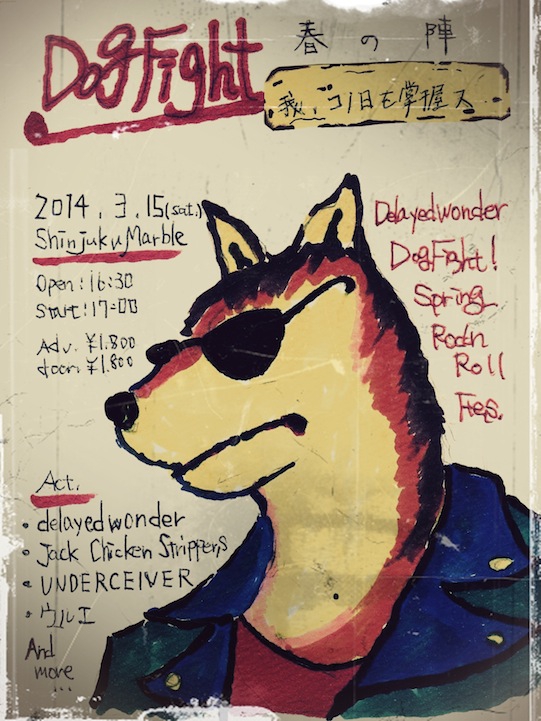 DogFight
春の陣
我、コノ日を掌握ス
2014.3.15(sat.)
Shinjuku Marble
Open:16:30
Start:17:00
Adv. ¥1.800
door. ¥1.800
Delayedwonder
DogFight!
Spring
Rockn
Roll
Fes.
Act.
• delayedwonder
• Jack Chicken Strippers
• UNDERCEIVER
• ウルエ
And
more
...